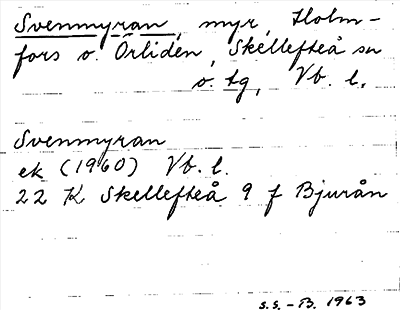 Svenmyran, myr, Holm-
fors o. Örliden, Skellefteå sn
o. tg, Vb. l.
Svenmyran
ek (1960) Vb. l.
22 K Skellefteå 9 f Bjurån
S.S. - B. 1963